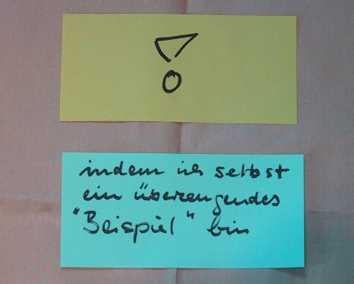 !
indem ich selbst
ein überzeugendes
"Beispiel" bin